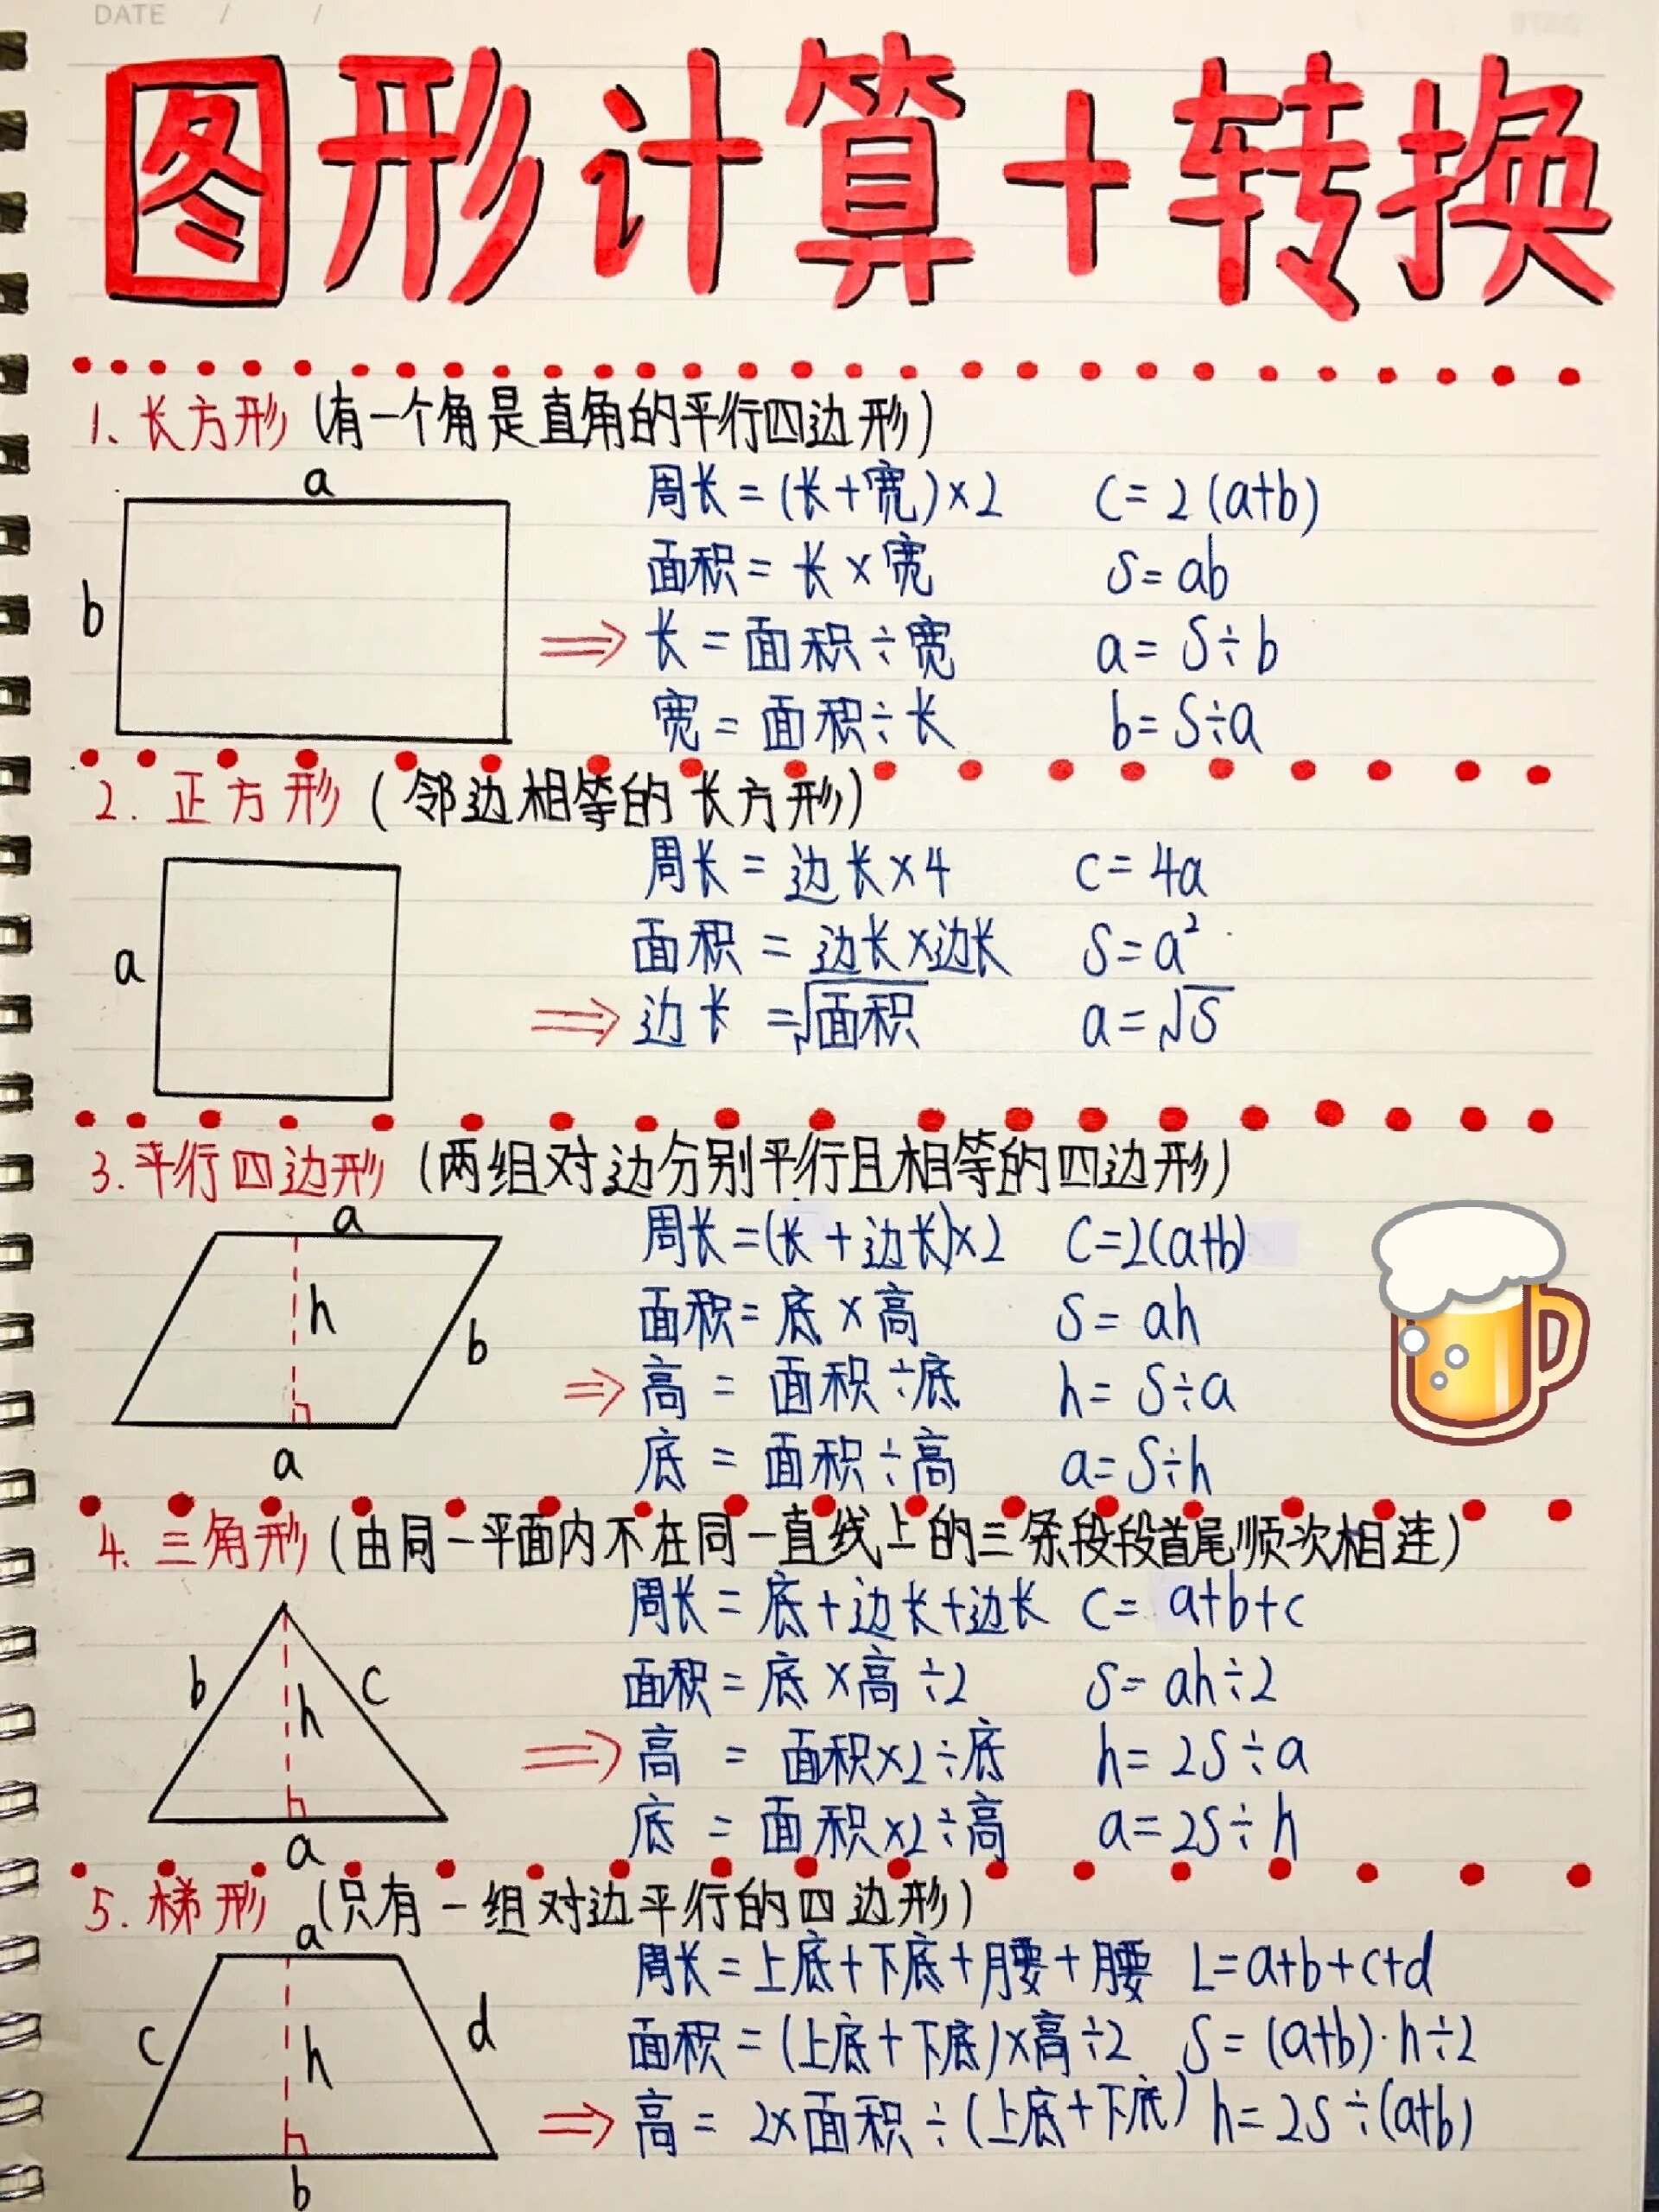 DATE / /
图形计算+转换
1、长方形(有一个角是直角的平行四边形)
a
周长=(长+宽)×2 C=2(a+b)
面积=长×宽 S=ab
b
长=面积÷宽 a=S÷b
宽=面积÷长 b=S÷a
2.正方形(邻边相等的长方形)
周长=边长×4 C=4a
a
面积=边长×边长 S=a²
边长=√面积 a=√S
3.平行四边形(两组对边分别平行且相等的四边形)
a
周长=(长+边长)×2 C=2(a+b)
h
面积=底×高 S=ah
b
高=面积÷底 h=S÷a
a
底=面积÷高 a=S÷h
4.三角形(由同一平面内不在同一直线上的三条段段首尾顺次相连)
周长=底+边长+边长 C=a+b+c
b h c
面积=底×高÷2 S=ah÷2
高=面积×2÷底 h=2S÷a
a
底=面积×2÷高 a=2S÷h
5.梯形(只有一组对边平行的四边形)
a
周长=上底+下底+腰+腰 L=a+b+c+d
c h d
面积=(上底+下底)×高÷2 S=(a+b)·h÷2
高=2×面积÷(上底+下底) h=2S÷(a+b)
b